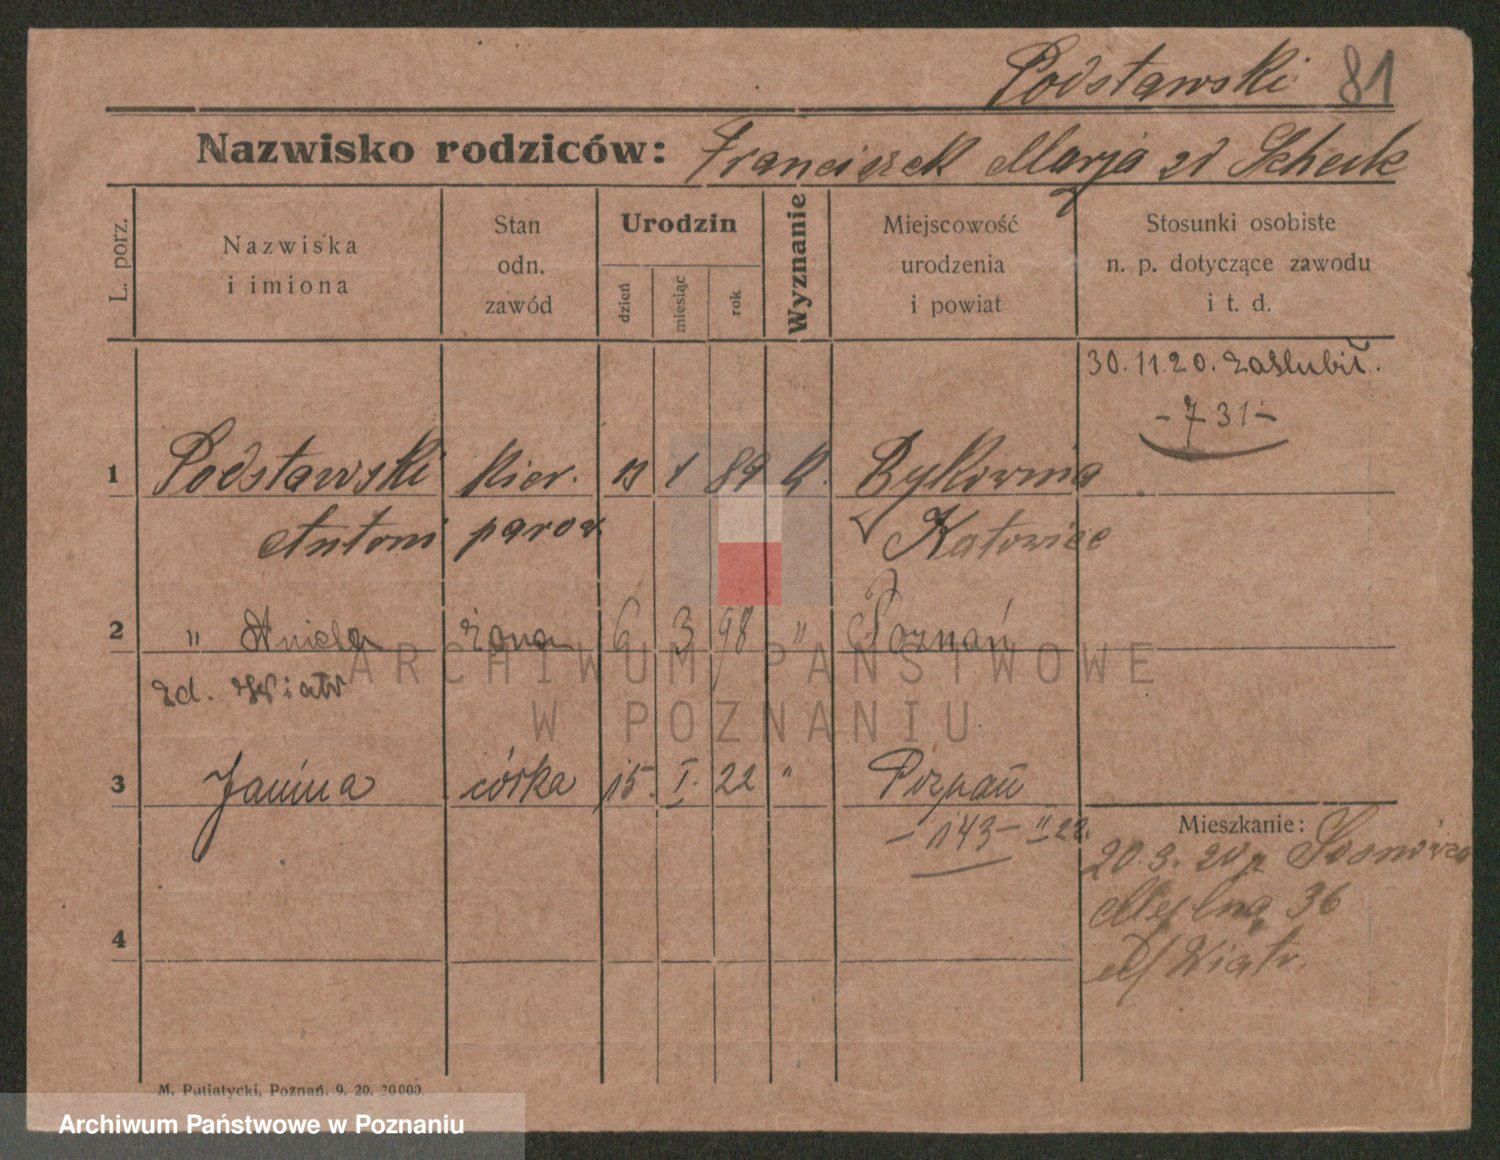 Podstawski 81
Nazwisko rodziców: Franciszek Marja zd Scheik
L. porz.
Nazwiska
i imiona
Stan
odn.
zawód
Urodzin
dzień
miesiąc
rok
Wyznanie
Miejscowość
urodzenia
i powiat
Stosunki osobiste
n. p. dotyczące zawodu
i t. d.
30.11.20. zaślubił.
- 731 -
1 Podstawski kier. 13 1 89 k. Bykownia
Antoni parow. Katowice
2 " Aniela żona 6 3 98 " Poznań
zd. Wiatr
3 Janina córka 15. I. 22 " Poznań
- 143 - II 22.
Mieszkanie:
20.3.20 z Sosnowca
Młyńska 36
Wiatr.
4
M. Putiatycki, Poznań. 9. 20. 20000.
ARCHIWUM PAŃSTWOWE
W POZNANIU
Archiwum Państwowe w Poznaniu